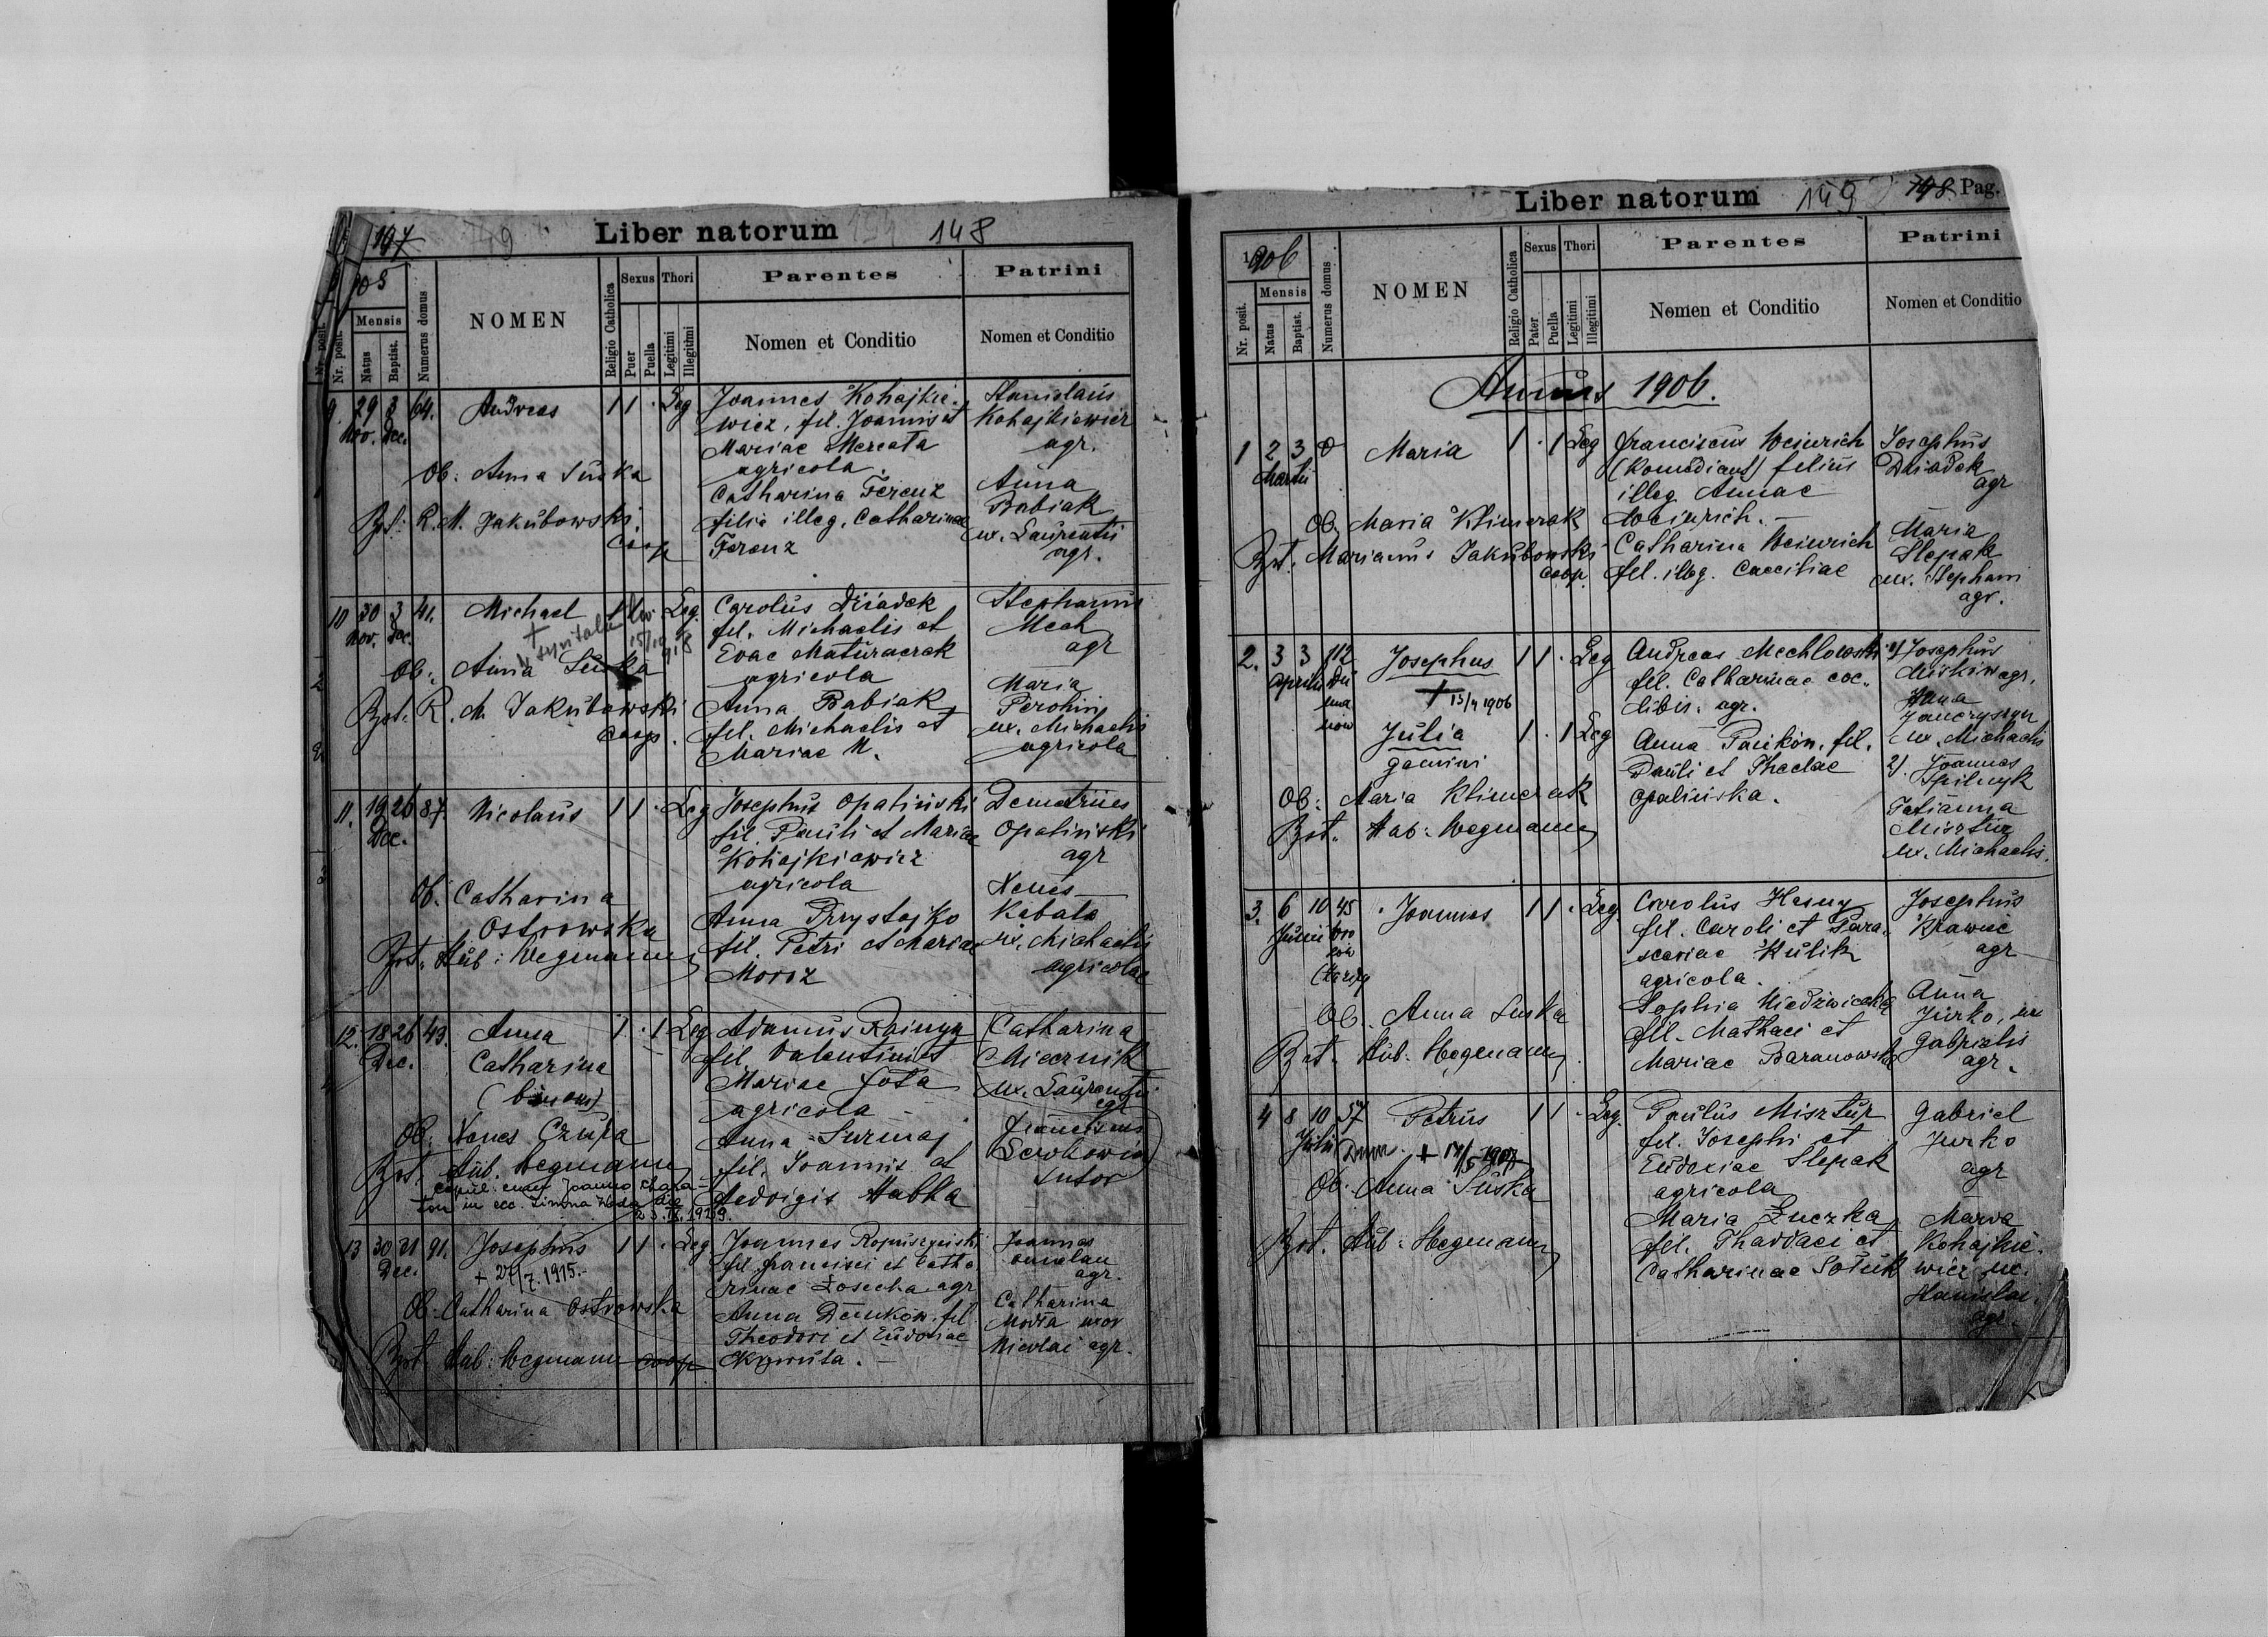 147
Liber natorum
148
1905
Nr. posit.
Mensis
Natus
Baptist.
Numerus domus
NOMEN
Religio Catholica
Sexus
Puer
Puella
Thori
Legitimi
Illegitimi
Parentes
Nomen et Conditio
Patrini
Nomen et Conditio
9. 29 3 64. Andreas 1 1 . Leg
Nov. Dec.
Ob: Anna Suska
Bpt: R. M. Jakubowski
coop
Joannes Kohajkie-
wicz, fil. Joannis et
Mariae Mercata
agricola.
Catharina Ferenz
filia illeg. Catharinae
Ferenz
Stanislaus
Kohajkiewicz
agr.
Anna
Babiak
ux. Laurentii
agr.
10 30 3 41. Michael Leg.
Nov. Dec.
+
Ob: Anna Suska
Bpt. R. M. Jakubowski
coop.
Carolus Dziadek
fil. Michaelis et
Evae Maturaczek
agricola
Anna Babiak
fil. Michaelis et
Mariae M.
Stephanus
Mech
agr
Maria
Perohin
ux. Michaelis
agricola
11. 19 26 87 Nicolaus 1 1 . Leg
Dec.
Ob. Catharina
Ostrowska
Bpt. Hub: Wegmann
Josephus Opalinski
fil. Pauli et Mariae
Kohajkiewicz
agricola
Anna Przystajko
fil. Petri et Mariae
Moroz
Demetrius
Opalinski
agr
Xenes
Kabala
ux. Michaelis
agricolae
12. 18 26 49. Anna 1 . 1 Leg
Dec. Catharina
(binom)
Ob. Xenes Czupa
Bpt. Hub. Wegmann
Adamus Rainyn
fil. Valentini et
Mariae Fota
agricola
Anna Surmaj
fil. Joannis et
Hedvigis Habka
Catharina
Miecznik
ux. Laurentii
agr
Franciscus
sutor
13 30 31 91. Josephus 1 1 . Leg
Dec. + 27/7.1915.-
Ob. Catharina Ostrowska
Bpt. Hub: Wegmann coop
Joannes Ropuszynski
fil. Francisci et Catha
rinae Losecha agr
Anna Demkow fil.
Theodori et Eudoxiae
Joannes
agr.
Catharina
Motta uxor
Nicolai agr.
Liber natorum
149
148 Pag.
1906
Nr. posit.
Mensis
Natus
Baptist.
Numerus domus
NOMEN
Religio Catholica
Sexus
Pater
Puella
Thori
Legitimi
Illegitimi
Parentes
Nomen et Conditio
Patrini
Nomen et Conditio
Annus 1906.
1 2 3 0 Maria 1 . 1 Leg
Martii
Ob. Maria Klimczak
Bpt. Marianus Jakubowski
coop.
Franciscus Weinrich
(Komediant) filius
illeg Annae
Weinrich.-
Catharina Weinrich
fil. illeg. Caeciliae
Josephus
Dziadek
agr
Maria
Slepak
ux. Stephani
agr.
2. 3 3 112 Josephus 1 1 . Leg
Aprilis
+ 13/4 1906
Julia 1 . 1 Leg
gemini
Ob: Maria Klimczak
Bpt. Hub: Wegmann
Andreas Mechlowski
fil. Catharinae coe-
libis. agr.
Anna Pankow. fil.
Pauli et Theclae
Opalinska.
1) Josephus
Miskow agr.
Anna
Janczyszyn
ux. Michaelis
2). Joannes
Spilnyk
Tatianna
Misztur
ux. Michaelis.
3. 6 10 45 Joannes 1 1 . Leg.
Junii
Ob. Anna Suska
Bpt. Hub. Wegmann
Carolus Hesny
fil. Caroli et Para-
sceviae Kulik
agricola.
Sophia Niedzwiecka
fil. Mathaei et
Mariae Baranowska
Josephus
Krawiec
agr
Anna
Jurko, ux
Gabrielis
agr.
4 8 10 57 Petrus 1 1 . Leg.
Julii + 17/5 1907
Ob. Anna Suska
Bpt. Hub: Wegmann
Paulus Misztur
fil. Josephi et
Eudoxiae Slepak
agricola
Maria Zuczka
fil. Thaddaei et
Catharinae Sotuk
Gabriel
Jurko
agr
Maria
Kohajkie-
wicz ux.
Stanislai.
agr.